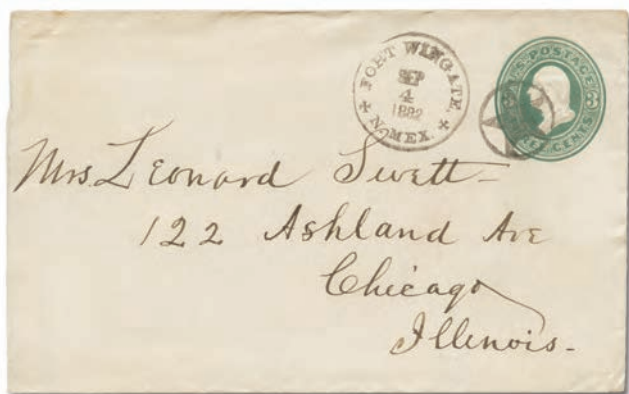 FORT WINGATE,
SEP
4
1882
N. MEX.
U.S. POSTAGE
3
CENTS
Mrs. Leonard Swett
122 Ashland Ave
Chicago
Illinois.